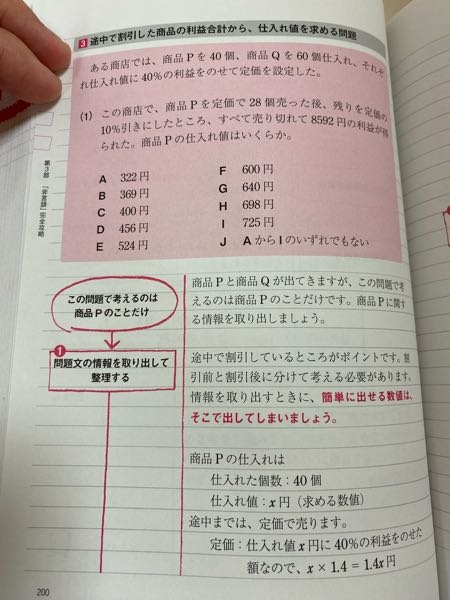 3 途中で割引した商品の利益合計から、仕入れ値を求める問題
ある商店では、商品Pを40個、商品Qを60個仕入れ、それぞ
れ仕入れ値に40％の利益をのせて定価を設定した。
(1) この商店で、商品Pを定価で28個売った後、残りを定価の
10％引きにしたところ、すべて売り切れて8592円の利益が得
られた。商品Pの仕入れ値はいくらか。
A 322円
B 369円
C 400円
D 456円
E 524円
F 600円
G 640円
H 698円
I 725円
J AからIのいずれでもない
第3部 「非言語」完全攻略
この問題で考えるのは
商品Pのことだけ
1
問題文の情報を取り出して
整理する
商品Pと商品Qが出てきますが、この問題で考
えるのは商品Pのことだけです。商品Pに関す
る情報を取り出しましょう。
途中で割引しているところがポイントです。割
引前と割引後に分けて考える必要があります。
情報を取り出すときに、簡単に出せる数値は、
そこで出してしまいましょう。
商品Pの仕入れは
仕入れた個数：40個
仕入れ値：x円（求める数値）
途中までは、定価で売ります。
定価：仕入れ値x円に40％の利益をのせた
額なので、x × 1.4 = 1.4x円
200